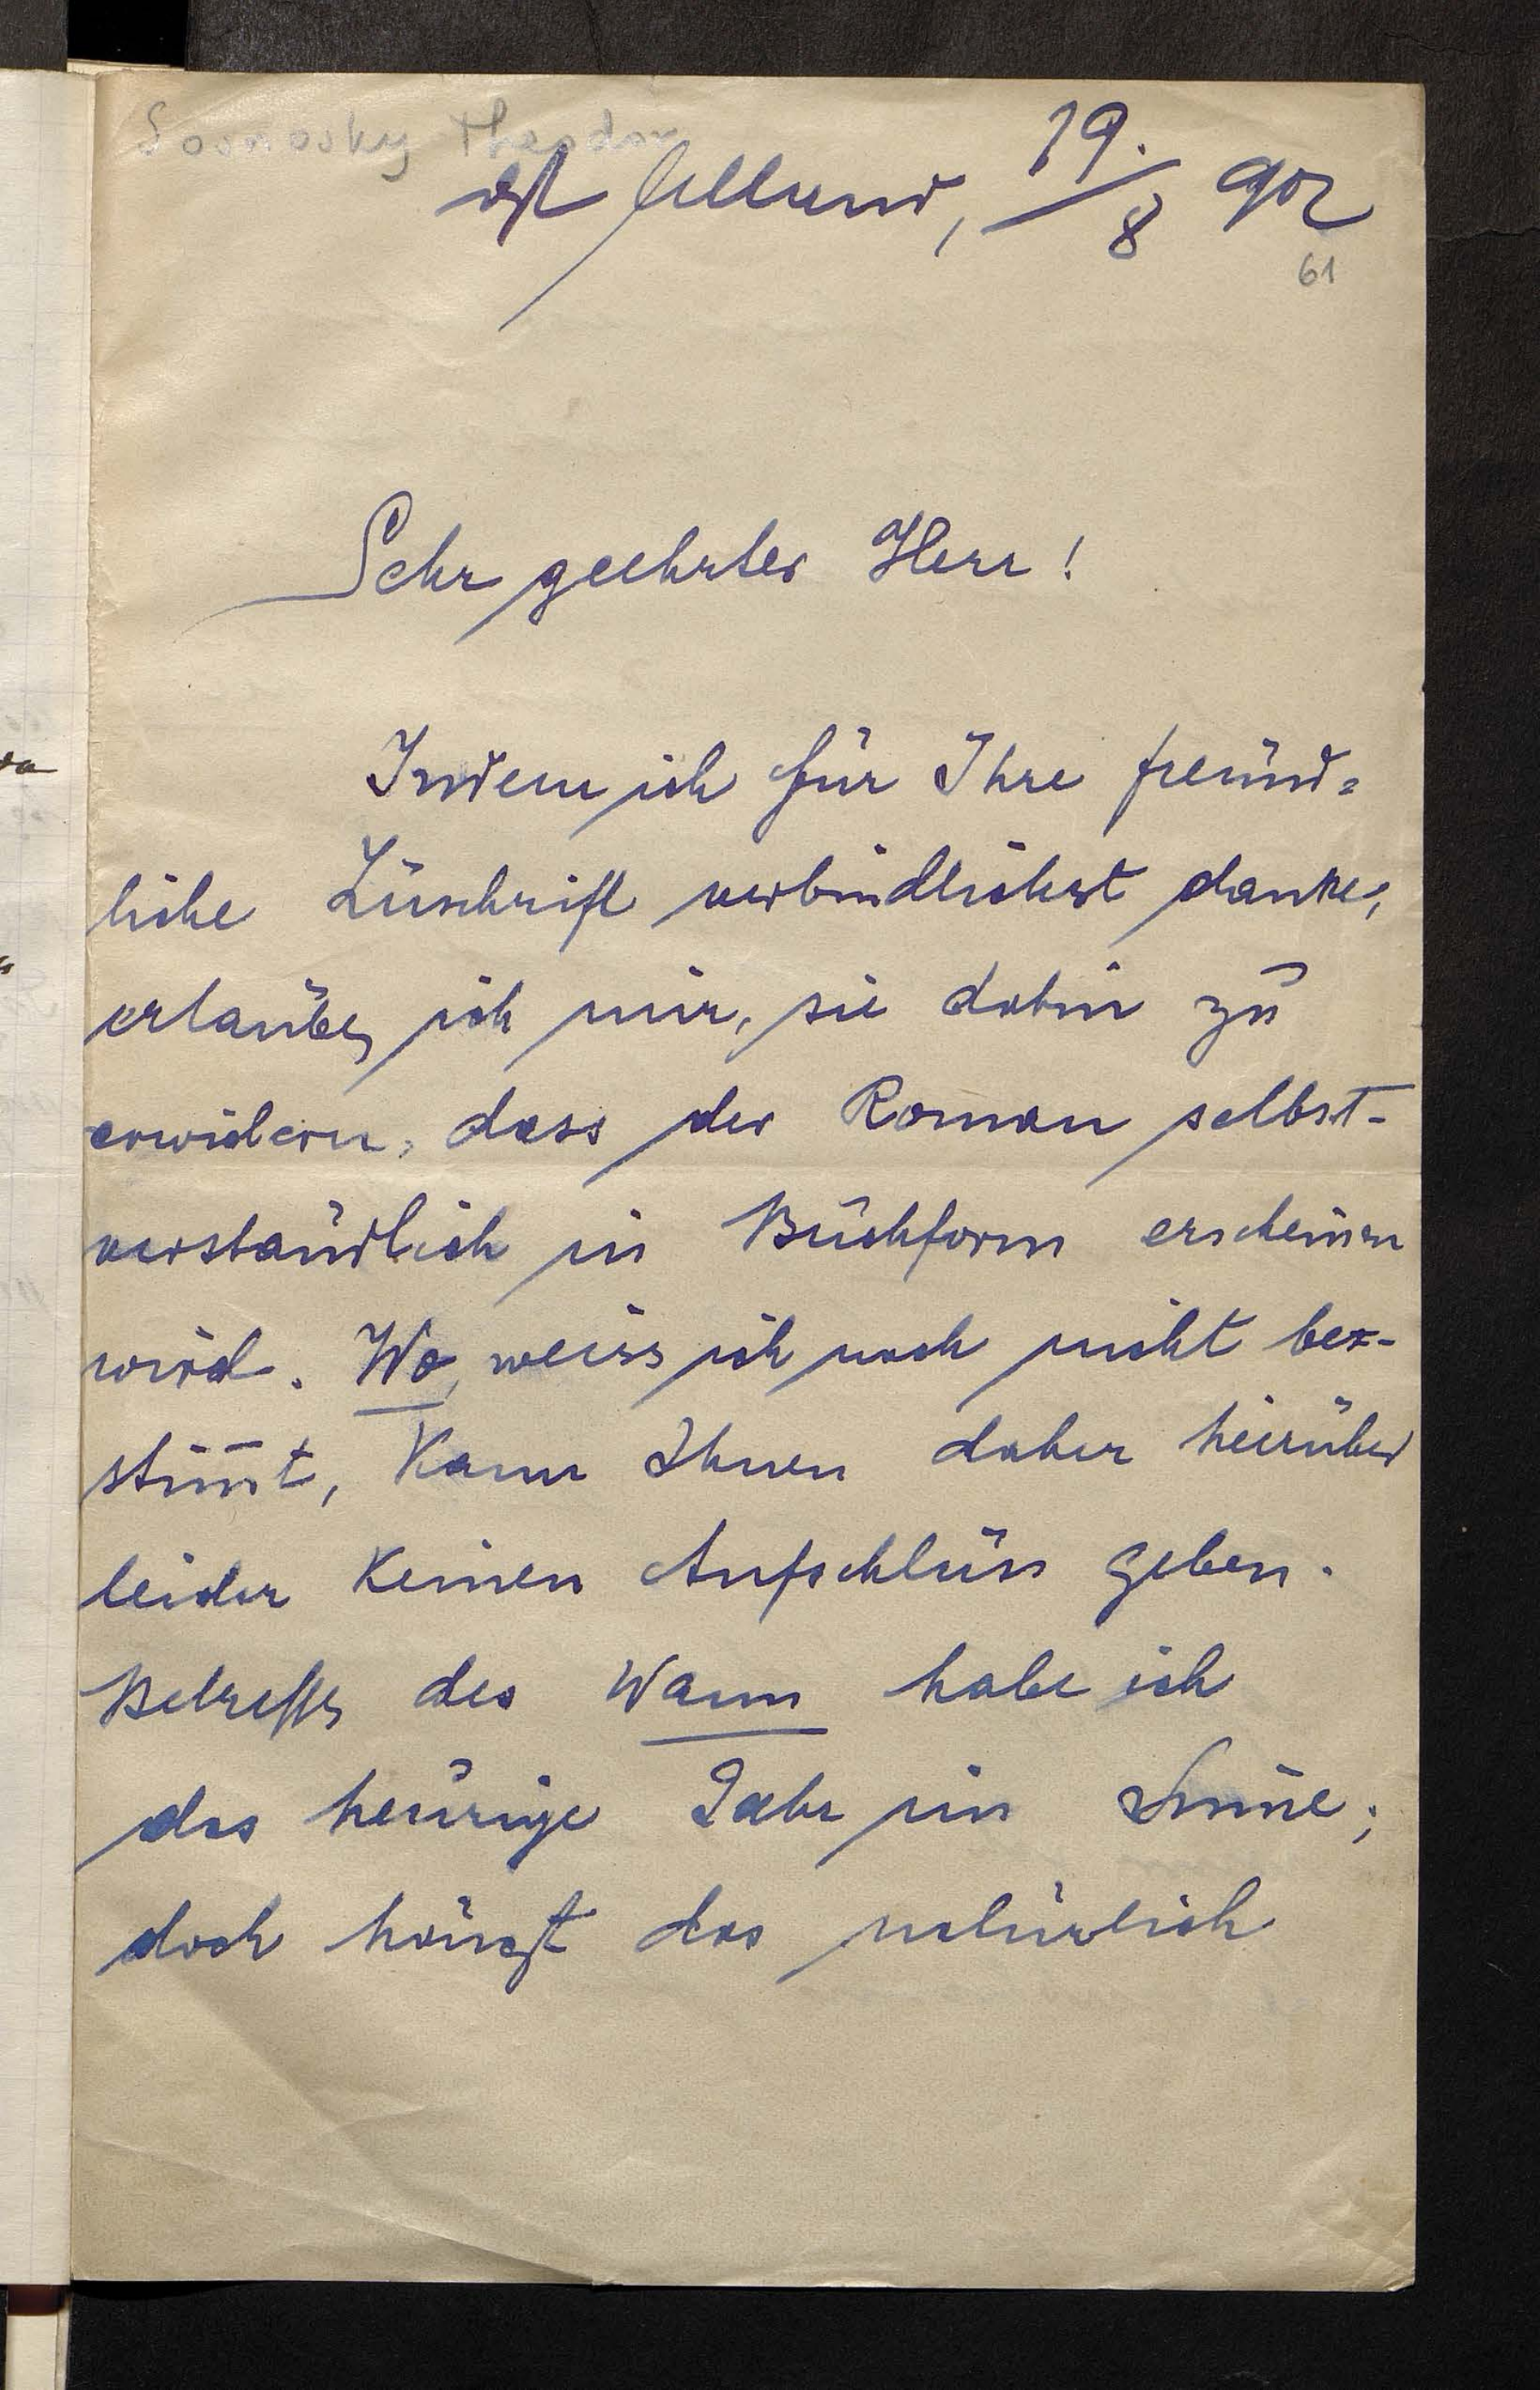 Sosnosky Theodor
dzt Alland, 19./8 902
61
Sehr geehrter Herr!
Indem ich für Ihre freund=
liche Zuschrift verbindlichst danke,
erlaube ich mir, sie dahin zu
erwidern, dass der Roman selbst-
verständlich in Buchform erscheinen
wird. Wo, weiss ich noch nicht be-
stim̅t, kann Ihnen daher hierüber
leider keinen Aufschluss geben.
Betreffs des Wann habe ich
das heurige Jahr im Sinne;
doch hängt das natürlich